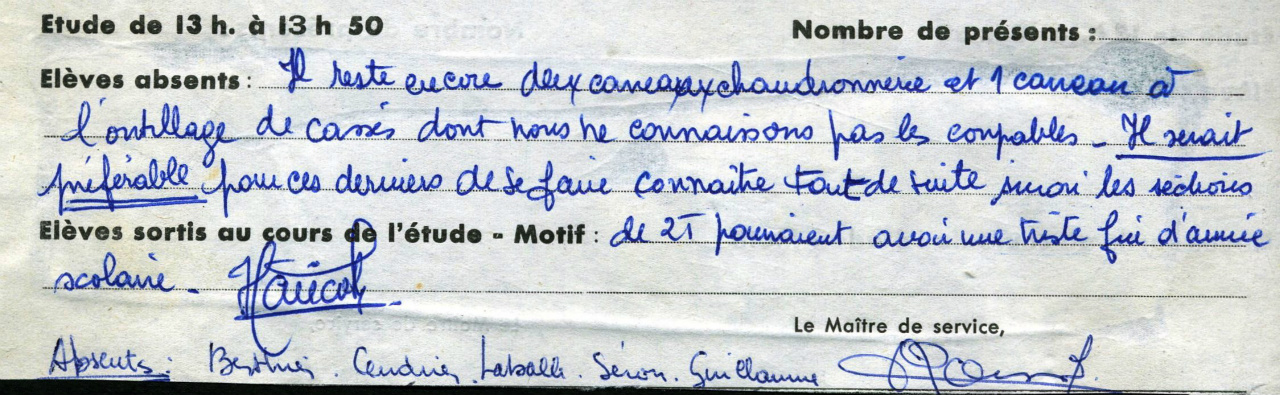 Etude de 13 h. à 13 h 50 Nombre de présents :
Elèves absents : Il reste encore deux carreaux chaudronnerie et 1 carreau à
l'outillage de cassés dont nous ne connaissons pas les coupables - Il serait
préférable pour ces derniers de se faire connaître tout de suite sinon les sections
Elèves sortis au cours de l'étude - Motif : de 2T pourraient avoir une triste fin d'année
scolaire -
Le Maître de service,
Absents : Berthier . Cendrier . Laballe . Séron . Guillaume